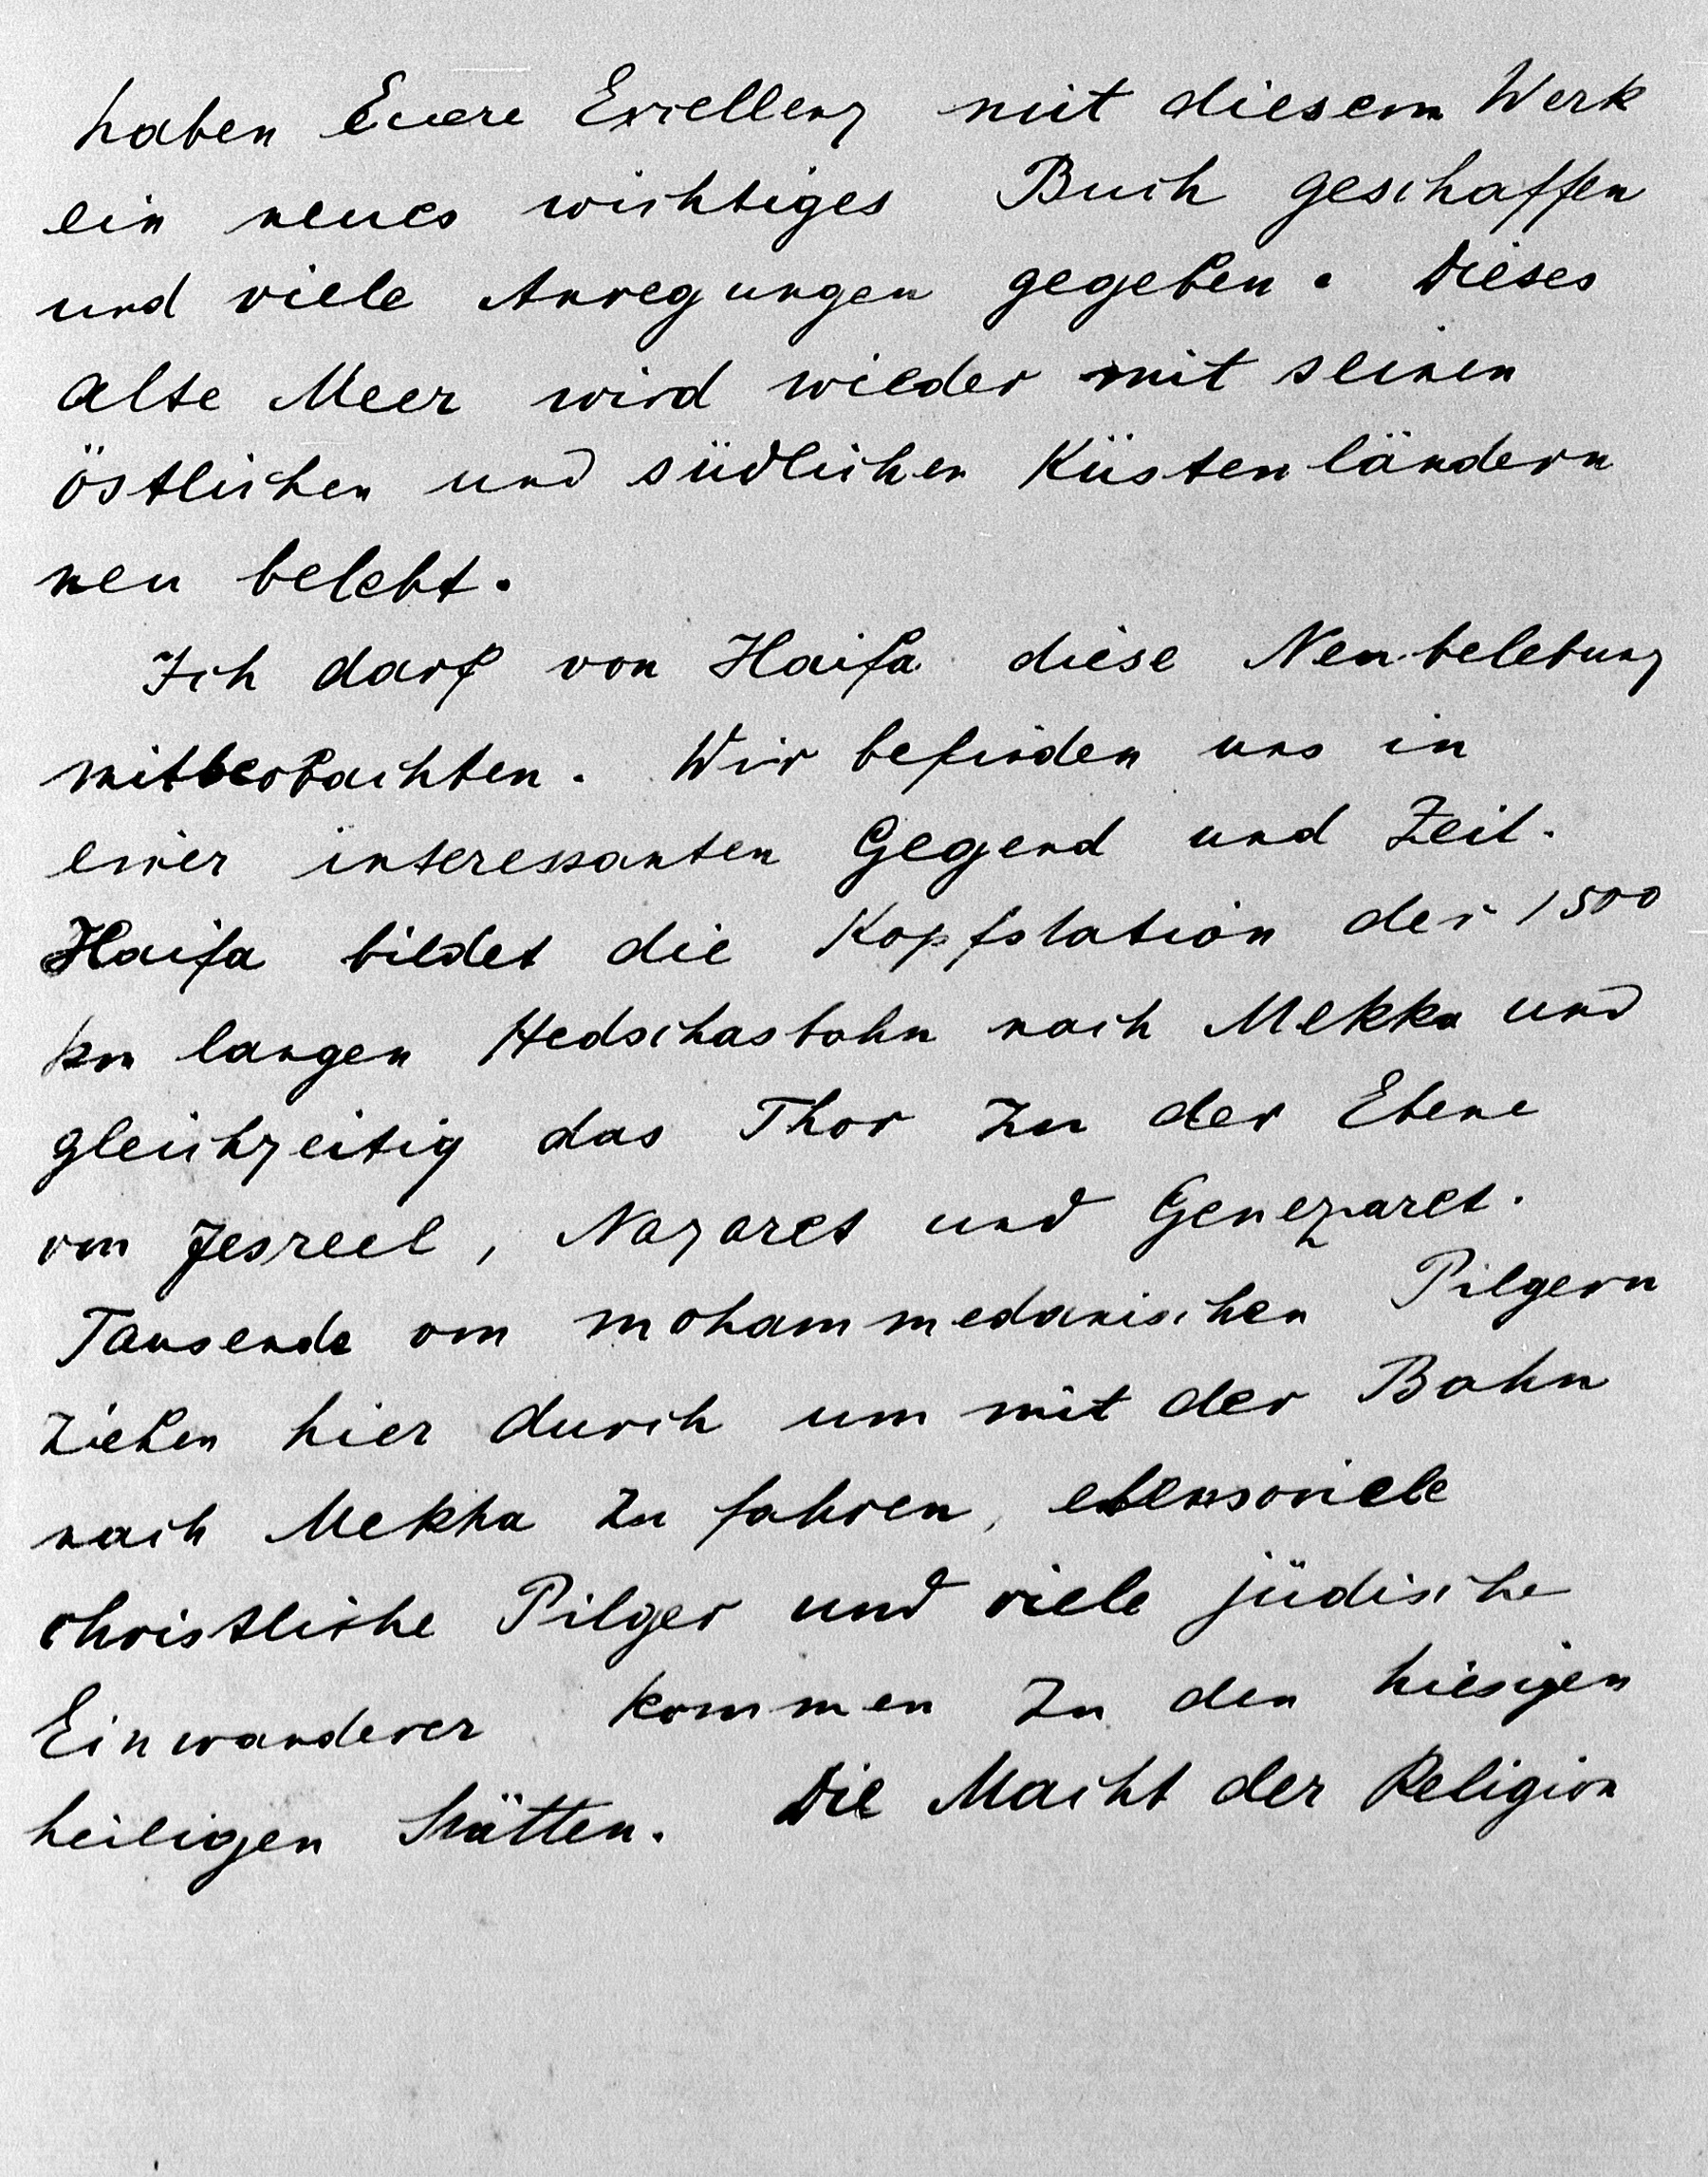 haben Euere Excellenz mit diesem Werk
ein neues wichtiges Buch geschaffen
und viele Anregungen gegeben. Dieses
alte Meer wird wieder mit seinen
östlichen und südlichen Küstenländern
neu belebt.
Ich darf von Haifa diese Neubelebung
mitbeobachten. Wir befinden uns in
einer interessanten Gegend und Zeit.
Haifa bildet die Kopfstation der 1500
km langen Hedschasbahn nach Mekka und
gleichzeitig das Thor zu der Ebene
von Jesreel, Nazaret und Genezaret.
Tausende von mohammedanischen Pilgern
ziehen hier durch um mit der Bahn
nach Mekka zu fahren, ebensoviele
christliche Pilger und viele jüdische
Einwanderer kommen zu den hiesigen
heiligen Stätten. Die Macht der Religion